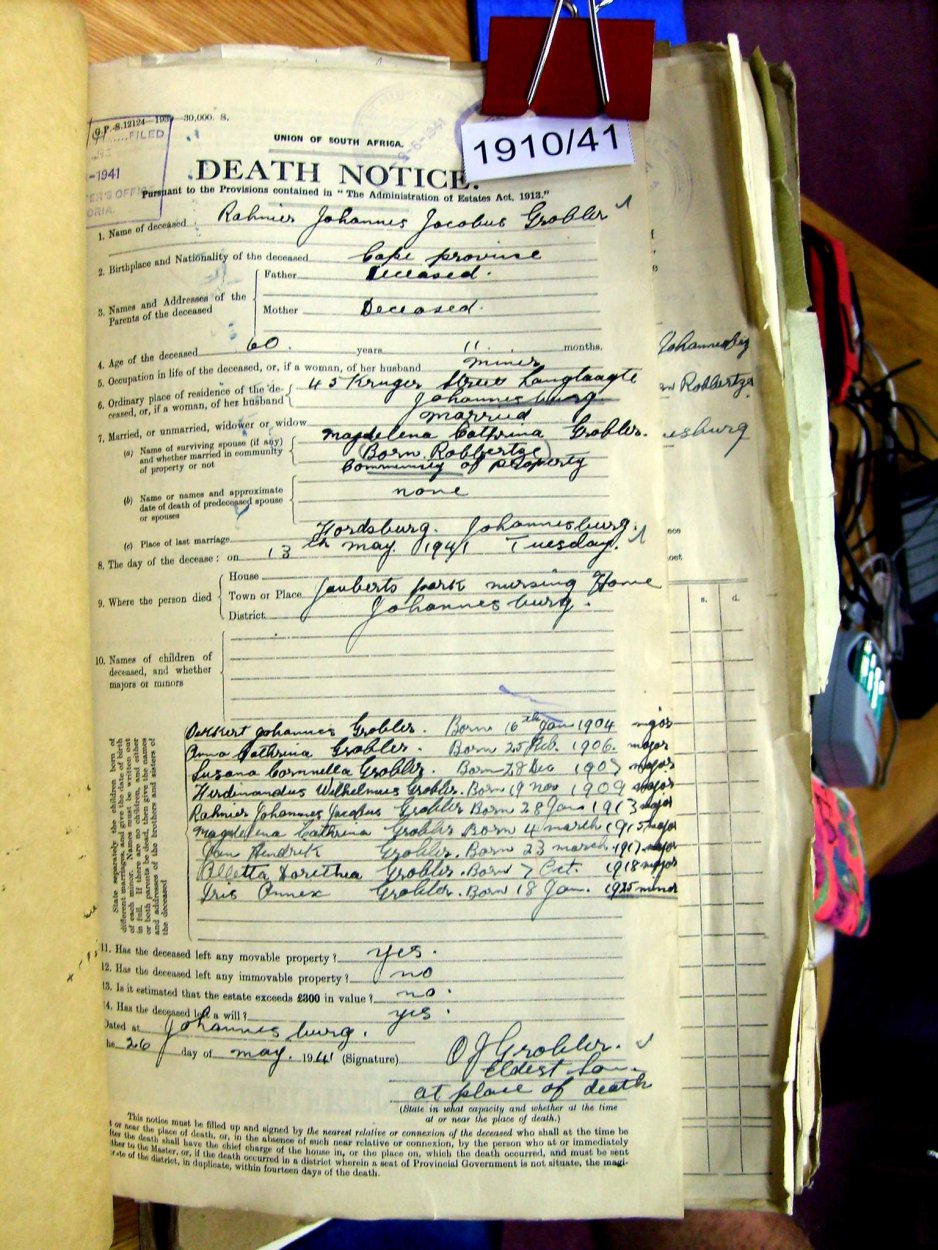 G.P.-S.12124—193 —30,000. S.
FILED
-1941
1910/41
UNION OF SOUTH AFRICA.
DEATH NOTICE.
Pursuant to the Provisions contained in "The Administration of Estates Act, 1913."
1. Name of deceased Rahnier Johannes Jacobus Grobler
2. Birthplace and Nationality of the deceased Cape province
3. Names and Addresses of the Parents of the deceased
Father Deceased.
Mother Deceased.
4. Age of the deceased 60 years 11 months.
5. Occupation in life of the deceased, or, if a woman, of her husband miner
6. Ordinary place of residence of the deceased, or, if a woman, of her husband 45 Kruger Street Langlaagte
Johannesburg.
7. Married, or unmarried, widower or widow married
(a) Name of surviving spouse (if any) and whether married in community of property or not
Magdelena Cathrina Grobler.
(Born Robbertze)
Community of property
(b) Name or names and approximate date of death of predeceased spouse or spouses
none
(c) Place of last marriage Fordsburg. Johannesburg.
8. The day of the decease: on 13th may 1941 Tuesday.
9. Where the person died
House
Town or Place Jouberts park nursing Home
District Johannesburg.
10. Names of children of deceased, and whether majors or minors
State separately the children born of
different marriages, and give the date of birth
of each minor. Names must be written out
in full. If there are no children, and either
or both parents be dead, then give the names
and addresses of the brothers and sisters of
the deceased
Johannes Grobler. Born 16th Jan 1904 major
Anna Cathrina Grobler. Born 25 Feb. 1906. major
Susana Cornnella Grobler. Born 28 Dec 1907 major
Ferdinandus Wilhelmus Grobler. Born 19 Nov 1909 major
Rahnier Johannes Jacobus Grobler Born 28 Jan 1913 major
Magdelena Cathrina Grobler Born 4 march 1915 major
Jan Hendrik Grobler. Born 23 march 1917 major
Alletta Dorithea Grobler. Born 7 Oct. 1918 major
Iris Annex Grobler. Born 18 Jan. 1925 minor
11. Has the deceased left any movable property? yes.
12. Has the deceased left any immovable property? no
13. Is it estimated that the estate exceeds £300 in value? no.
14. Has the deceased left a will? yes.
Dated at Johannesburg.
the 26 day of may. 1941 (Signature) O J Grobler.
Eldest Son
at place of death
(State in what capacity and whether at the time
at or near the place of death.)
This notice must be filled up and signed by the nearest relative or connexion of the deceased who shall at the time be
or near the place of death, or, in the absence of such near relative or connexion, by the person who at or immediately
after the death shall have the chief charge of the house in, or the place on, which the death occurred, and must be sent
ther to the Master, or, if the death occurred in a district wherein a seat of Provincial Government is not situate, the magi-
rate of the district, in duplicate, within fourteen days of the death.
Robbertze
esburg
s. d.